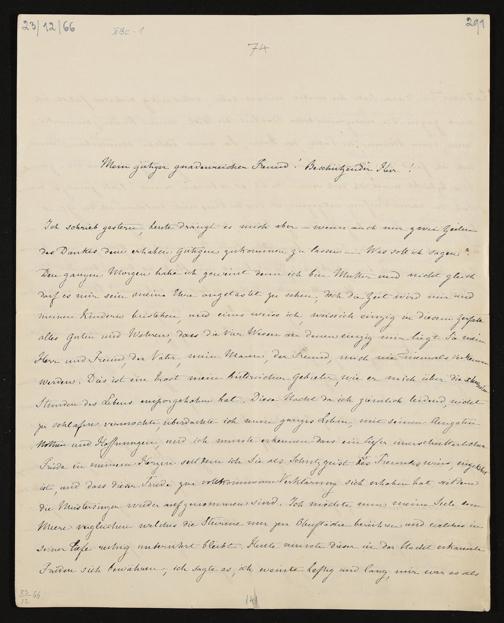 23/12/66
291
74
Mein gütiger gnadenreicher Freund! Beschützender Herr!
Ich schrieb gestern, heute drängt es mich aber – wenn auch nur zwei Zeilen
des Dankes dem erhaben Gütigen zukommen zu lassen – Was soll ich sagen?
Den ganzen Morgen habe ich geweint denn ich bin Mutter und nicht gleich
darf es mir sein meine Ehre angetastet zu sehen, doch die Zeit wird mir und
meinen Kindern beistehen, und eines weiss ich, weiss ich einzig in diesem Zerfalle
alles Guten und Wahren, dass die vier Wesen an denen einzig mir liegt Sie mein
Herr und Freund, der Vater, mein Mann, der Freund, mich nie niemals verkennen
werden. Das ist ein Trost mein hülfreicher Gebieter, wie er mich über die
Stunden des Lebens emporgehoben hat. Diese Nacht da ich ziemlich leidend nicht
zu schlafen vermochte überdachte ich mein ganzes Leben, mit seinen Ängsten
Nöthen und Hoffnungen, und ich musste erkennen dass ein tiefer unerschütterlicher
Friede in meinem Herzen seitdem ich Sie als Schutzgeist des Freundes weiss, eingekehrt
ist, und dass dieser Friede zur vollkommenen Verklärung sich erhoben hat seitdem
die Meistersinger wieder aufgenommen sind. Ich möchte nun meine Seele dem
Meere vergleichen welches die Stürme nur zur Oberfläche berühren und welches in
seiner Tiefe ruhig unberührt bleibt. Heute musste dieser in der Nacht erkannte
Frieden sich bewähren; ich sagte es, ich weinte heftig und lang, mir war es als